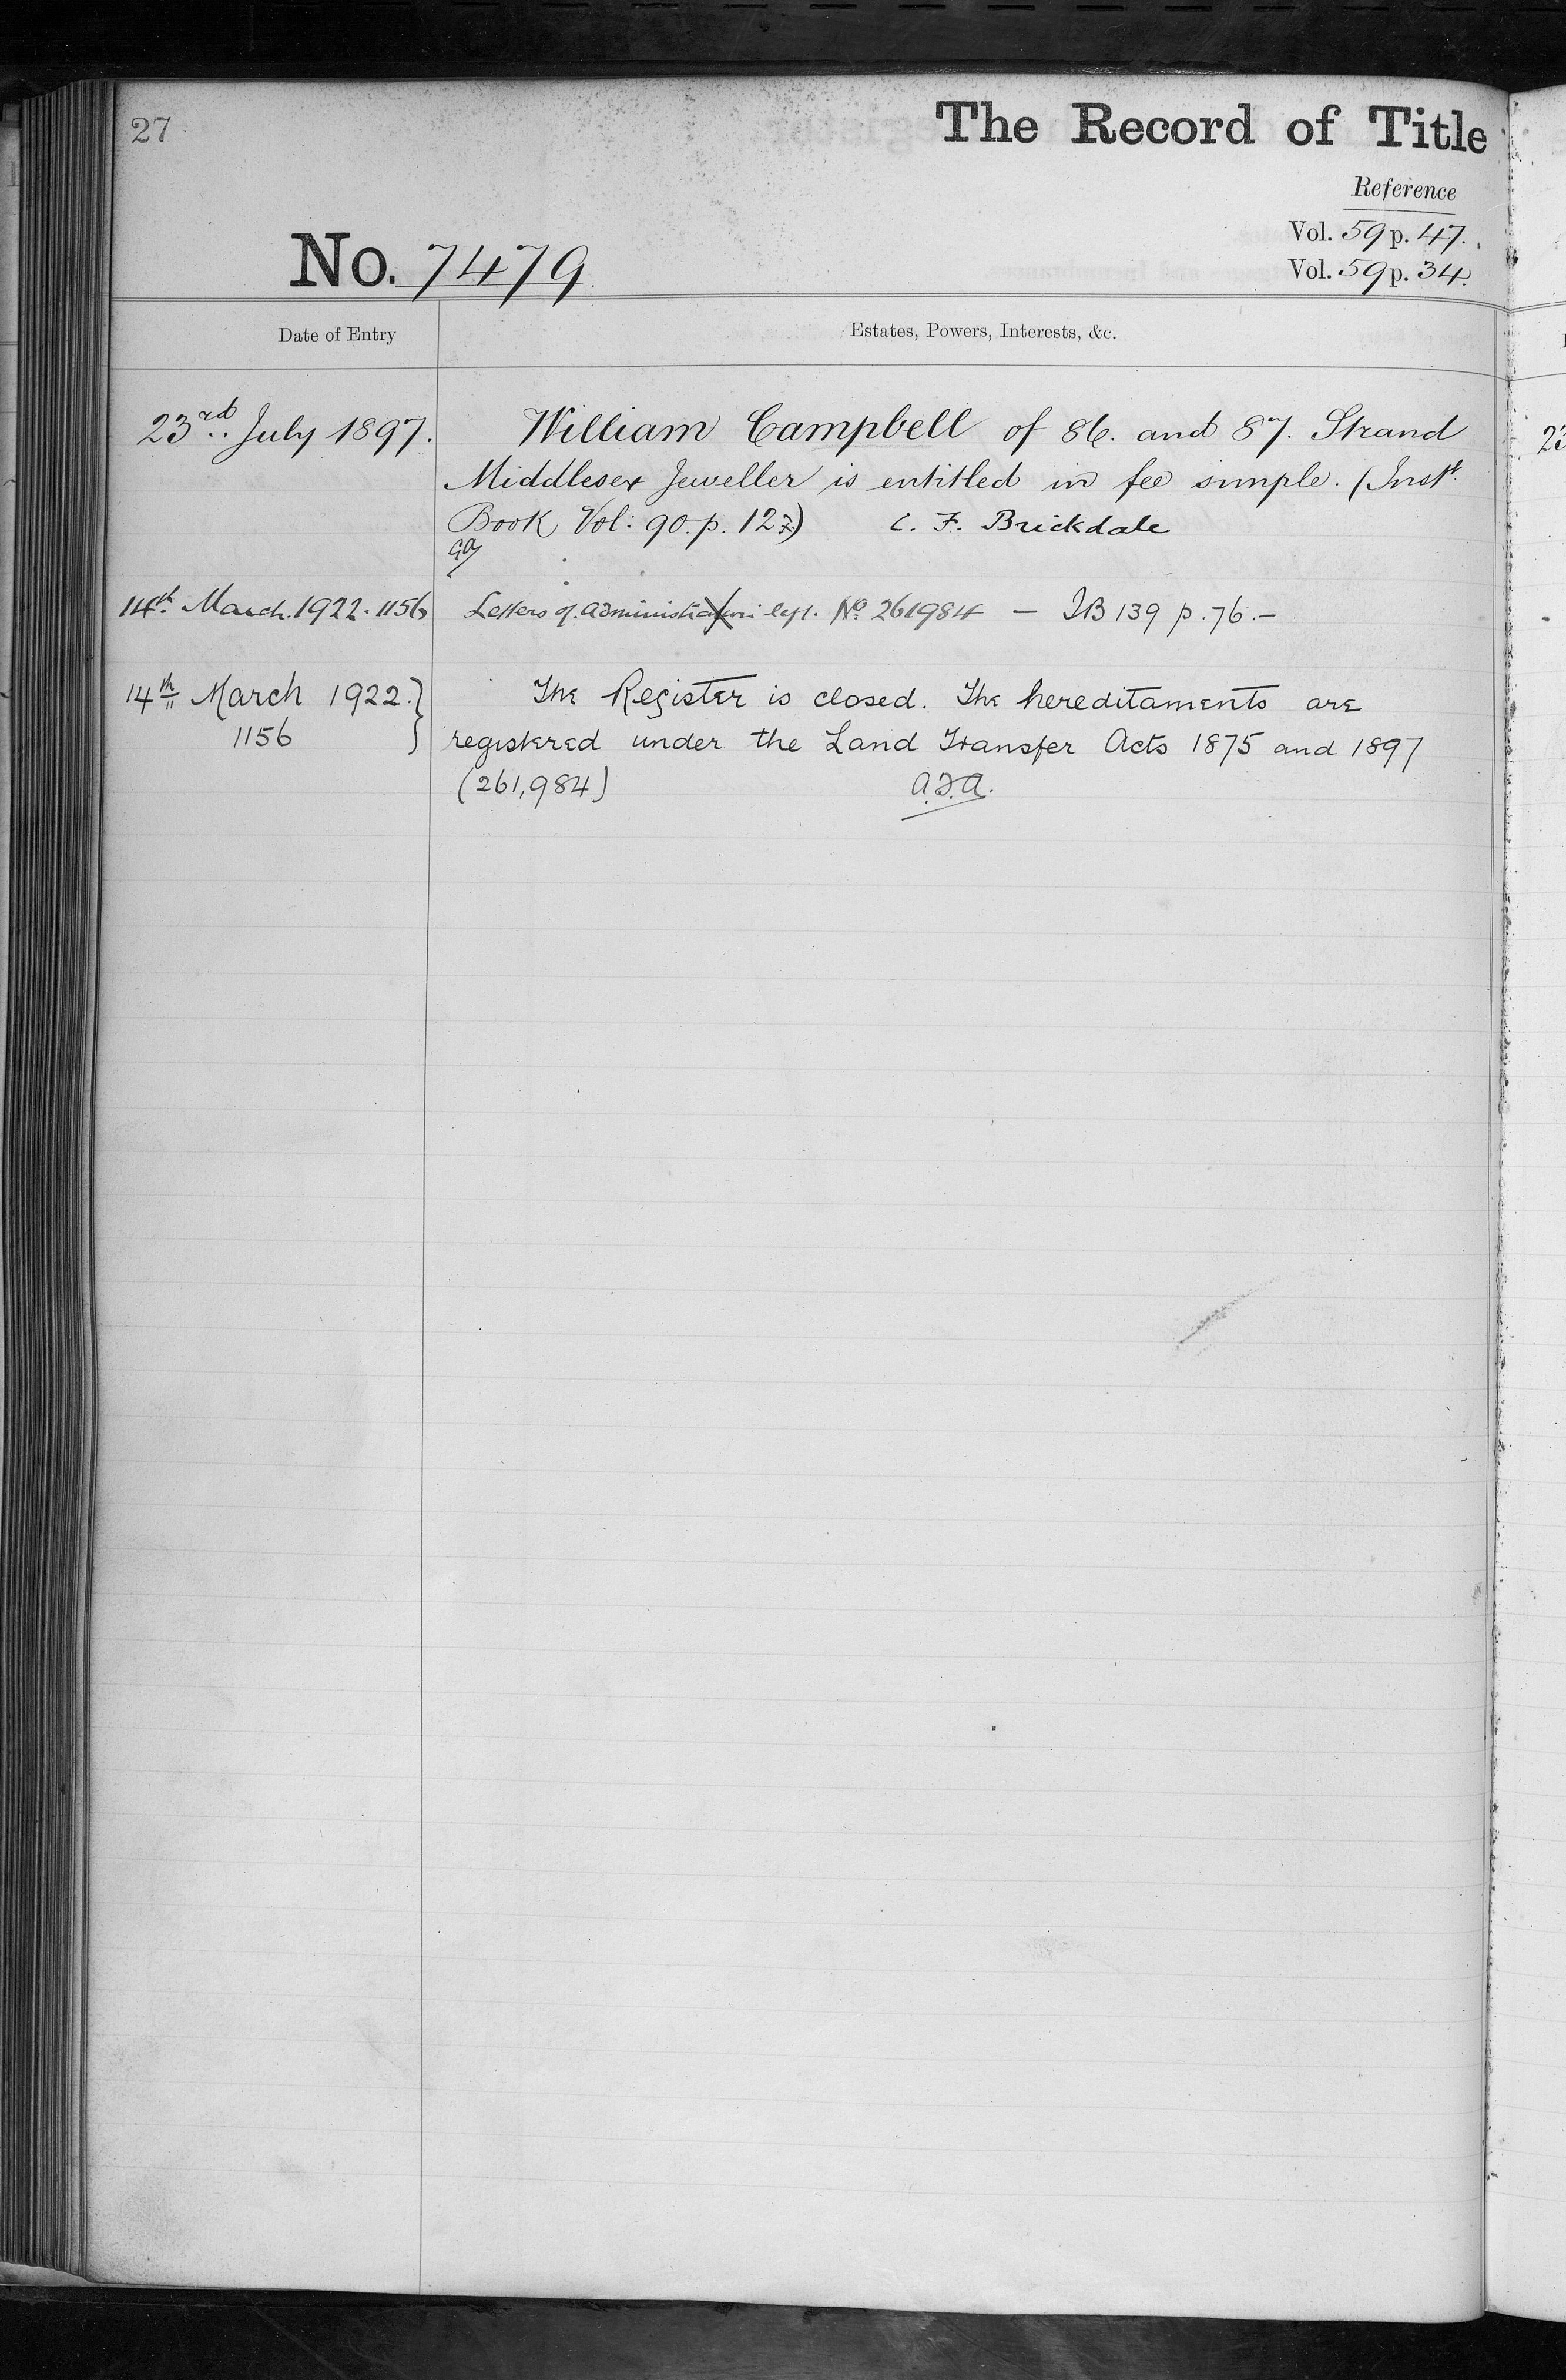 27
The Record of Title
Reference
Vol. 59 p. 47.
Vol. 59 p. 34.
No. 7479
Date of Entry
Estates, Powers, Interests, &c.
23rd July 1897.
William Campbell of 86. and 87. Strand
Middlesex Jeweller is entitled in fee simple. (Inst.
Book Vol: 90. p. 127) C. F. Brickdale
14th March. 1922. 1156
Letters of administration No. 261984 — IB 139 p. 76. —
14th March 1922.
1156
The Register is closed. The hereditaments are
registered under the Land Transfer Acts 1875 and 1897
(261,984) A.J.A.